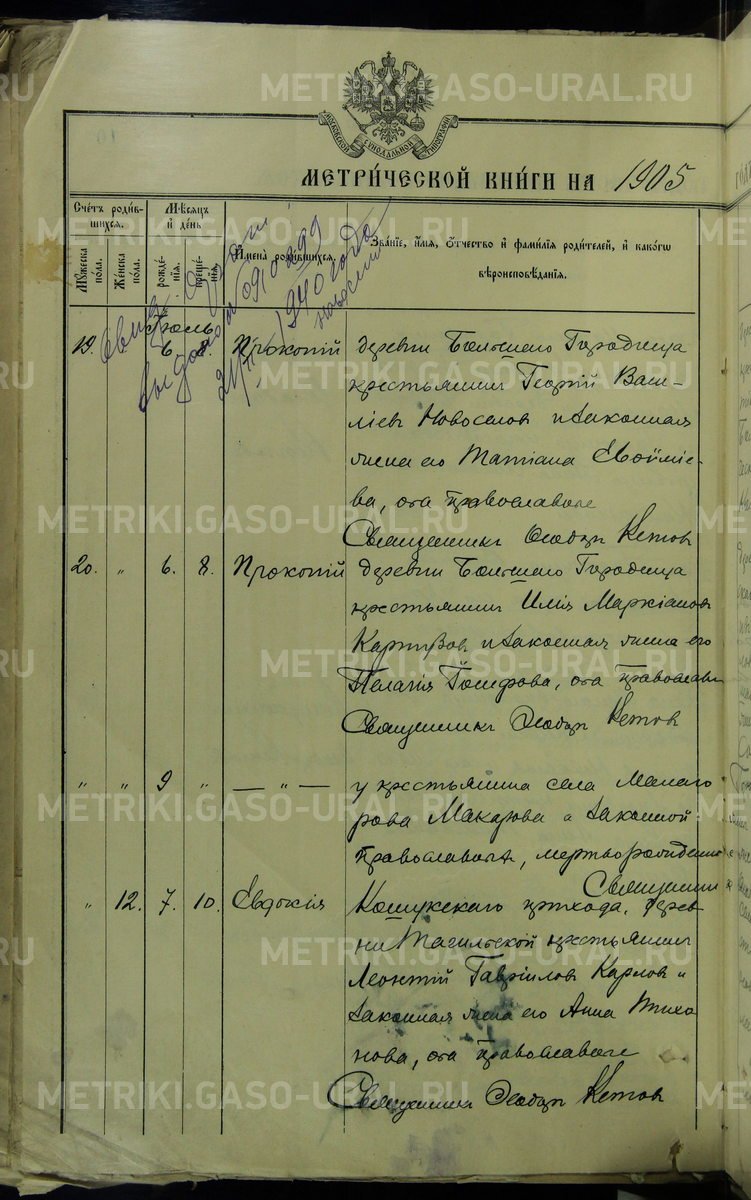 МЕТРИ́ЧЕСКОЙ КНИ́ГИ НА 1905
Сче́тъ роди́в-
шихся.
Мѣ́сяцъ
и҆ де́нь
Му́жеска по́ла.
Же́нска по́ла.
рожде́-
нія.
креще́-
нія.
И҆мена̀ роди́вшихся.
Зва́ніе, и҆́мя, ѻ҆́тчество и҆ фами́лія роди́телей, и҆ како́гѡ
вѣроисповѣ́данія.
1940 года
19. 6 8. Прокопій деревни Большего Городища
крестьянинъ Георгій Васи-
ліевъ Новоселовъ и законная
жена его Татіана Евѳиміе-
ва, оба православные
Священникъ Ѳеодоръ Кетовъ
20. „ 6. 8. Прокопій деревни Большего Городища
крестьянинъ Илія Маркіановъ
и законная жена его
Пелагія Іосифова, оба православн
Священникъ Ѳеодоръ Кетовъ
„ „ 9 „ — „ — у крестьянина села Малаго
рова Макарова и законной
православныхъ, мертворожденн
Священни
„ 12. 7. 10. Евдокія Кошукскаго прихода, дерев
ни Тагильской крестьянинъ
Леонтій Гавріиловъ Карповъ и
законная жена его Анна Тихо
нова, оба православные
Священникъ Ѳеодоръ Кетовъ
METRIKI.GASO-URAL.RU